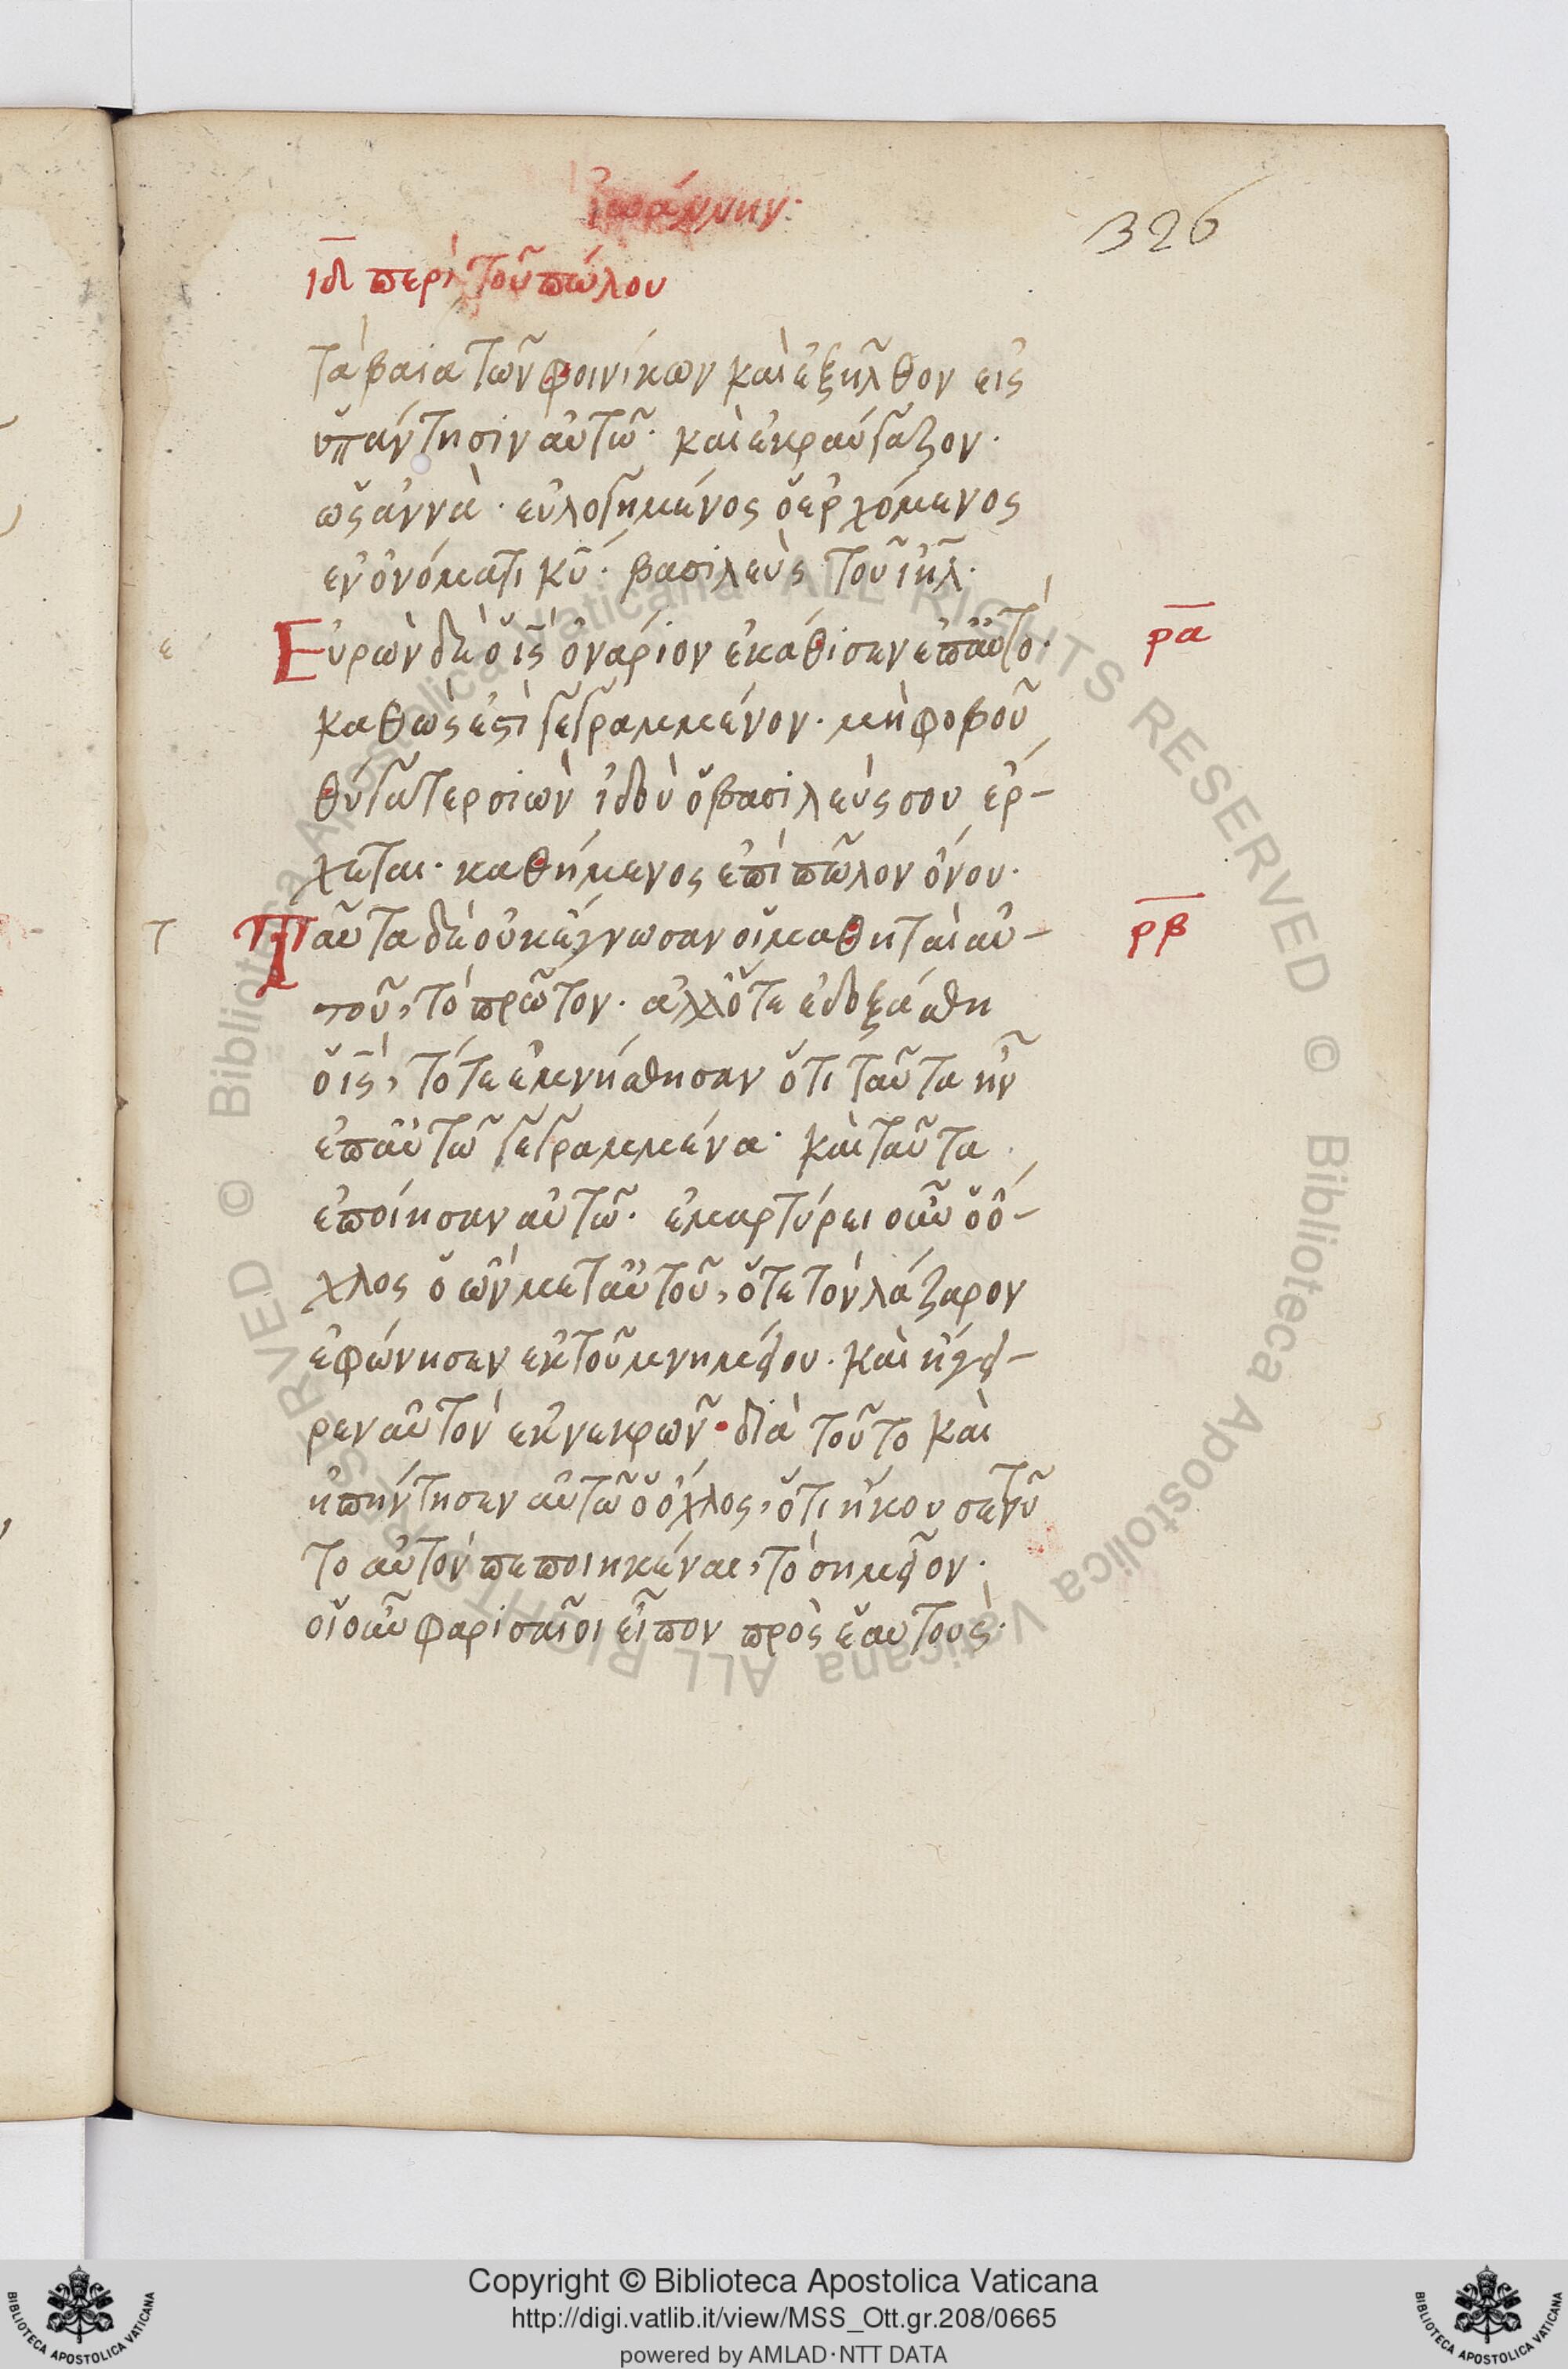 Ἰωάννην·
326
ιδ περὶ τοῦ πώλου
τὰ βαία τῶν φοινίκων καὶ ἐξῆλθον εἰς
ὑπάντησιν αὐτῶ· καὶ ἐκραύγαζον·
ὡσαννὰ· εὐλογημένος ὁ ἐρχόμενος
ἐν ὀνόματι κ̅υ̅· βασιλεὺς τοῦ ι̅η̅λ̅·
ε Εὑρὼν δὲ ὁ ι̅ς̅ ὀνάριον ἐκάθισεν ἐπαὐτὸ· ρα
καθώς ἐστὶ γεγραμμένον· μὴ φοβοῦ
θύγατερ σιὼν ἰδοὺ ὁ βασιλεύς σου ἔρ-
χεται· καθήμενος ἐπὶ πῶλον ὄνου·
τ Ταῦτα δὲ οὐκ ἔγνωσαν οἱ μαθηταὶ αὐ- ρβ
τοῦ, τὸ πρῶτον· ἀλλ ὅτε ἐδοξάσθη
ὁ ι̅ς̅, τότε ἐμνήσθησαν ὅτι ταῦτα ἦν
ἐπ αὐτῶ γεγραμμένα· καὶ ταῦτα
ἐποίησαν αὐτῶ· ἐμαρτύρει οὖν ὁ ὄ-
χλος ὁ ὢν μετ αὐτοῦ, ὅτε τὸν λάζαρον
ἐφώνησεν ἐκ τοῦ μνημείου· καὶ ἤγει-
ρεν αὐτὸν ἐκ νεκρῶν· διὰ τοῦτο καὶ
ὑπήντησεν αὐτῶ ὁ ὄχλος, ὅτι ἤκουσε τοῦ
το αὐτὸν πεποιηκέναι, τὸ σημεῖον·
οἱ οὖν φαρισαῖοι εἶπον πρὸς ἑαυτοὺς·
© Biblioteca Apostolica Vaticana ALL RIGHTS RESERVED © Biblioteca Apostolica Vaticana ALL RIGHTS RESERVED
BIBLIOTECA APOSTOLICA VATICANA
Copyright © Biblioteca Apostolica Vaticana
http://digi.vatlib.it/view/MSS_Ott.gr.208/0665
powered by AMLAD·NTT DATA
BIBLIOTECA APOSTOLICA VATICANA